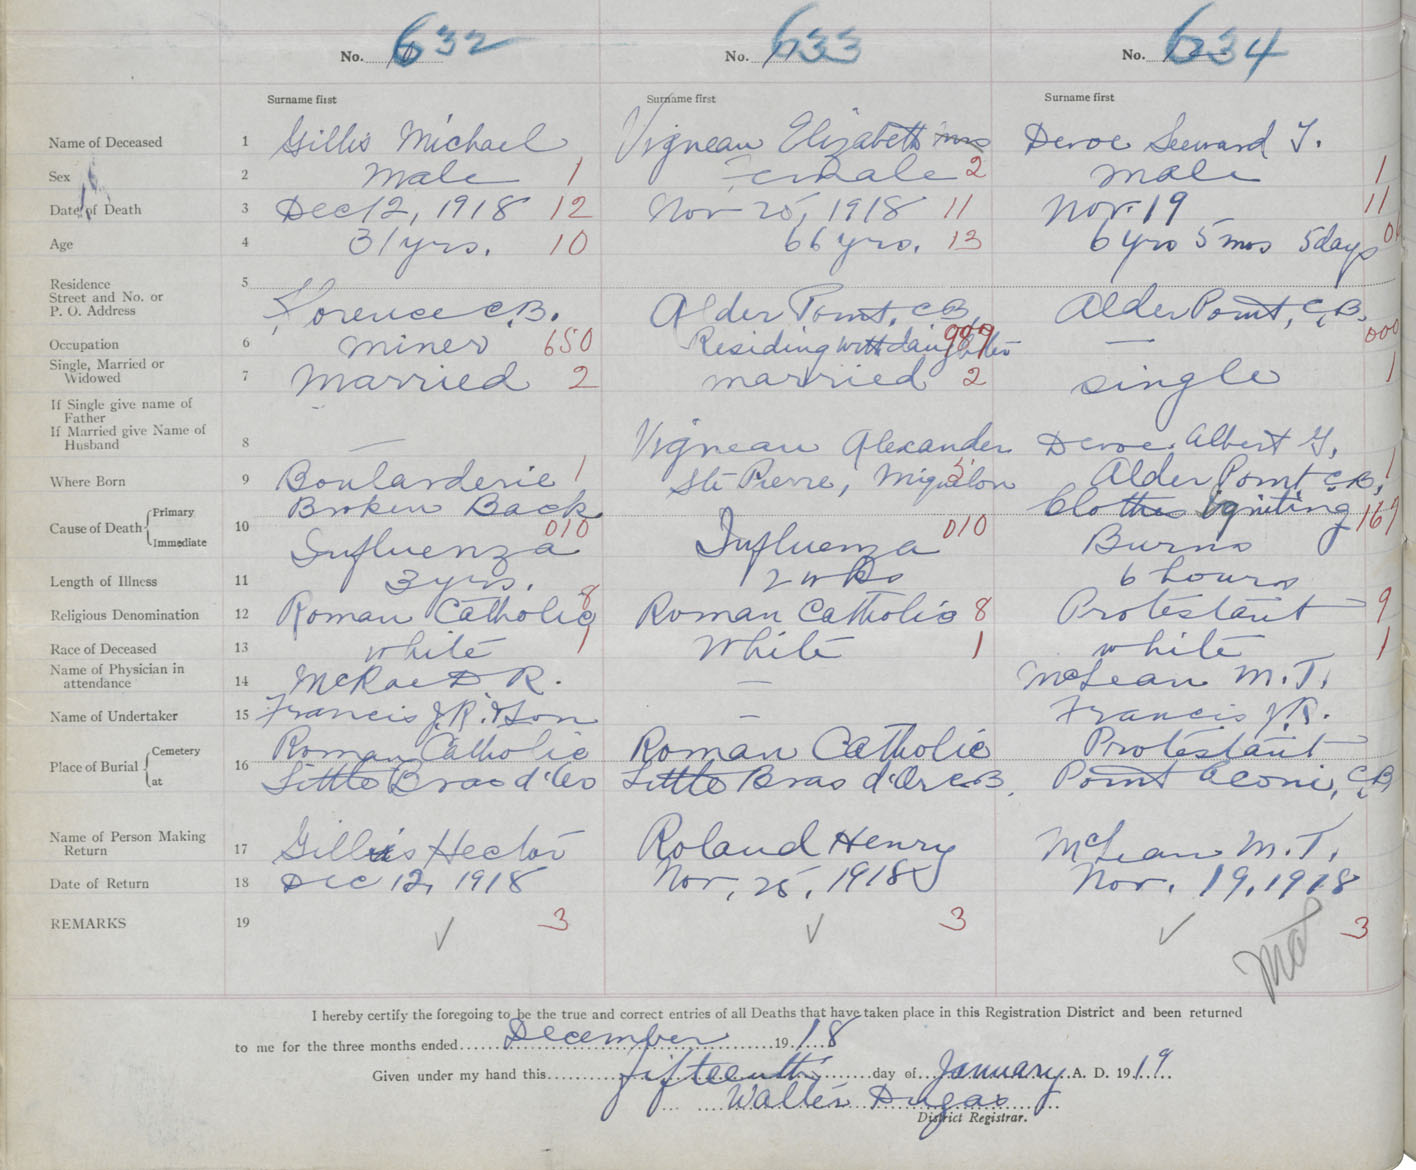 No. 632 No. 633 No. 634
Surname first Surname first Surname first
Name of Deceased 1 Gillis Michael Vigneau Elizabeth Mrs Devoe Seeward T.
Sex 2 Male 1 Female 2 Male 1
Date of Death 3 Dec 12, 1918 12 Nov 25, 1918 11 Nov. 19 11
Age 4 31 yrs. 10 66 yrs. 13 6 yrs 5 mos 5 days
Residence
Street and No. or
P. O. Address 5 Florence C.B. Alder Point, C.B. Alder Point, C.B.
Occupation 6 Miner 650 Residing with daughter 989 — 000
Single, Married or
Widowed 7 Married 2 married 2 single 1
If Single give name of
Father
If Married give Name of
Husband 8 — Vigneau Alexander Devoe Albert G. 1
Where Born 9 Boularderie 1 Ste Pierre, Miquelon Alder Point C.B. 1
Cause of Death Primary Broken Back Clothes igniting
10 010 010 167
Immediate Influenza Influenza Burns
Length of Illness 11 3 yrs. 2 wks 6 hours
Religious Denomination 12 Roman Catholic 8 Roman Catholic 8 Protestant 9
Race of Deceased 13 white 1 White 1 white 1
Name of Physician in
attendance 14 McRae D R. — McLean M. T.
Name of Undertaker 15 Francis J.R. & Son — Francis J.R.
Place of Burial Cemetery Roman Catholic Roman Catholic Protestant
at 16 Little Bras d'Or Little Bras d'Or C.B. Point Aconi, C.B
Name of Person Making
Return 17 Gillis Hector Roland Henry McLean M. T.
Date of Return 18 Dec 12, 1918 Nov. 25, 1918 Nov. 19, 1918
REMARKS 19 ✓ 3 ✓ 3 ✓ 3
I hereby certify the foregoing to be the true and correct entries of all Deaths that have taken place in this Registration District and been returned
to me for the three months ended December 1918
Given under my hand this fifteenth day of January A. D. 1919
Walter Dugas
District Registrar.